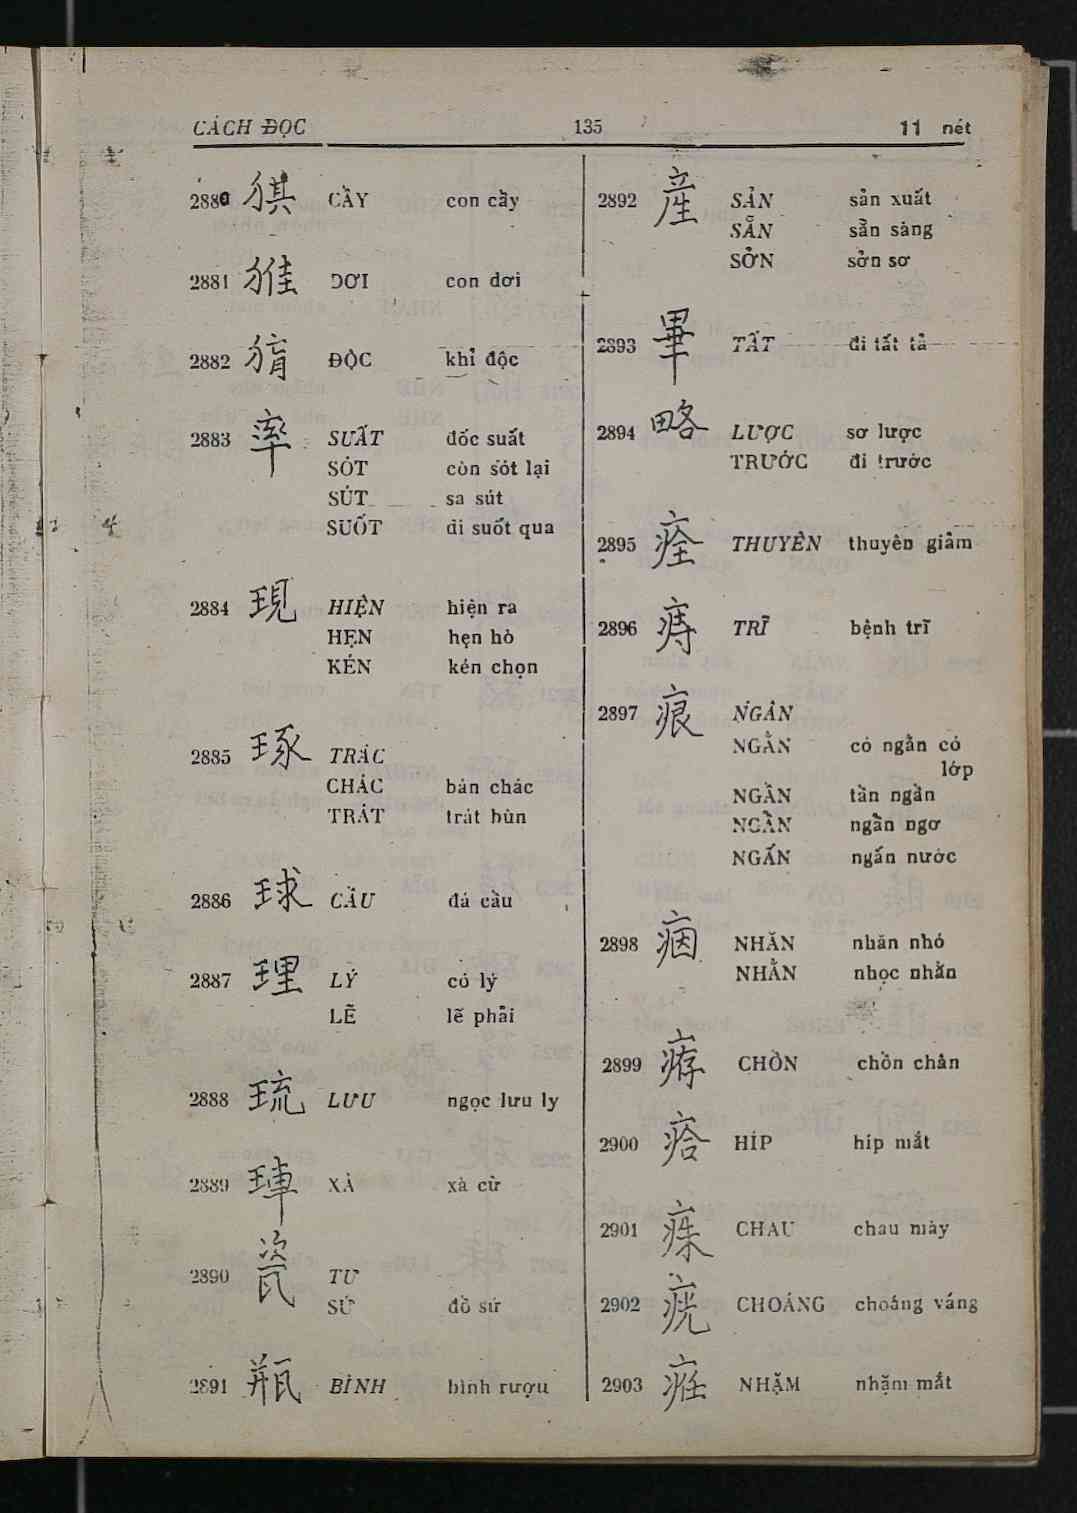 CÁCH ĐỌC 135 11 nét
2880 CẦY con cầy
2881 DƠI con dơi
2882 ĐỘC khỉ độc
2883 率 SUẤT đốc suất
SÓT còn sót lại
SÚT sa sút
SUỐT đi suốt qua
2884 現 HIỆN hiện ra
HẸN hẹn hò
KÉN kén chọn
2885 琢 TRÁC
CHÁC bán chác
TRÁT trát bùn
2886 球 CẦU đá cầu
2887 理 LÝ có lý
LẼ lẽ phải
2888 琉 LƯU ngọc lưu ly
2889 XÀ xà cừ
2890 瓷 TƯ
SỨ đồ sứ
2891 瓶 BÌNH bình rượu
2892 産 SẢN sản xuất
SẴN sẵn sàng
SỞN sởn sơ
2893 畢 TẤT đi tất tả
2894 略 LƯỢC sơ lược
TRƯỚC đi trước
2895 痊 THUYÊN thuyên giảm
2896 痔 TRĨ bệnh trĩ
2897 痕 NGÂN
NGẰN có ngằn có
lớp
NGẦN tần ngần
NGẨN ngẩn ngơ
NGẤN ngấn nước
2898 NHĂN nhăn nhó
NHẰN nhọc nhằn
2899 CHỒN chồn chân
2900 HÍP híp mắt
2901 CHAU chau mày
2902 CHOÁNG choáng váng
2903 NHẮM nhắm mắt